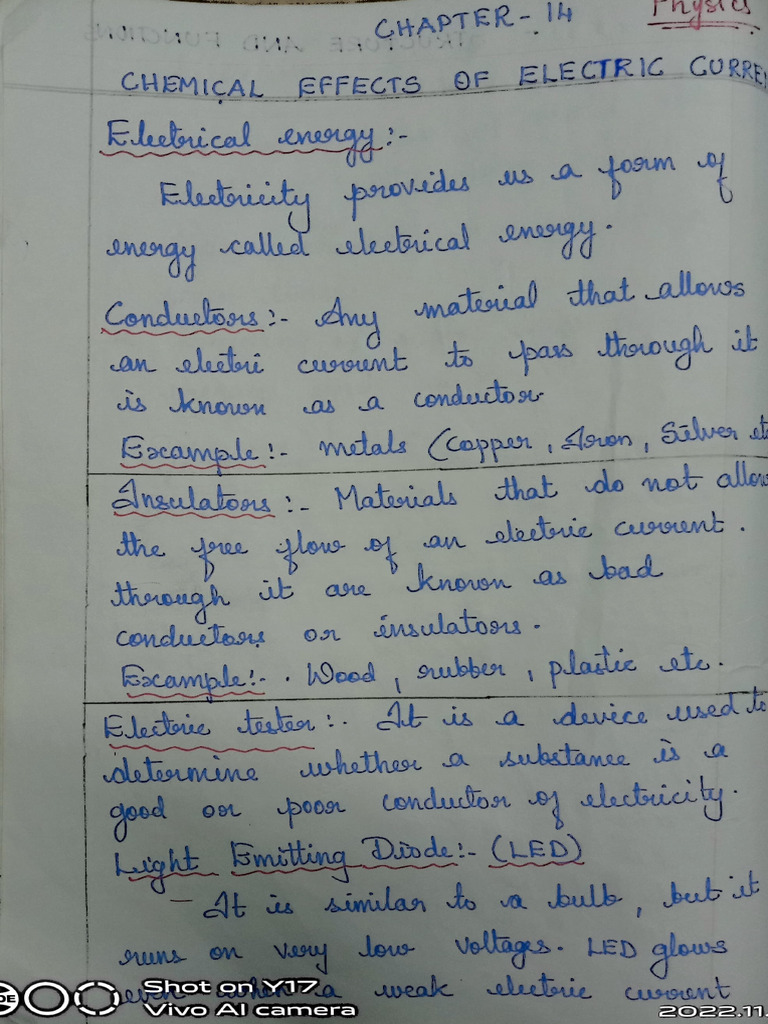 Physics
CHAPTER - 14
CHEMICAL EFFECTS OF ELECTRIC CURRE
Electrical energy :-
Electricity provides us a form of
energy called electrical energy.
Conductors :- Any material that allows
an electri current to pass through it
is known as a conductor.
Example :- metals (Copper, Iron, Silver et
Insulators :- Materials that do not allow
the free flow of an electric current.
through it are known as bad
conductors or insulators.
Example :- . Wood, rubber, plastic etc.
Electric tester :. It is a device used to
determine whether a substance is a
good or poor conductor of electricity.
Light Emitting Diode :- (LED)
- It is similar to a bulb, but it
runs on very low voltages. LED glows
even when a weak electric current
Shot on Y17
Vivo AI camera
2022.11.